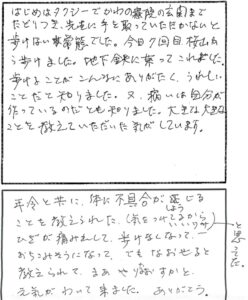 はじめはタクシーでかわの療院の玄関まで
たどりつき、先生に手を取っていただかないと
歩けない状態でした。今日7回目 桜山か
ら歩けました。地下鉄に乗ってこれました。
歩けることがこんなにありがたく、うれしい
ことだと知りました。又、病いは自分が
作っているのだとも知りました。大きな大きな
ことを教えていただいた気がしています。
年令と共に、体に不具合が生じる
ことも教えられた、(気をつけてるから
しょう
いいワサ
と思ってた。
ひざが痛み出して、歩けなくなって一
おちこみそうになって、でもなおせると
教えられて、まあ やり直すかと、
元気がわいて来ました。ありがとう。